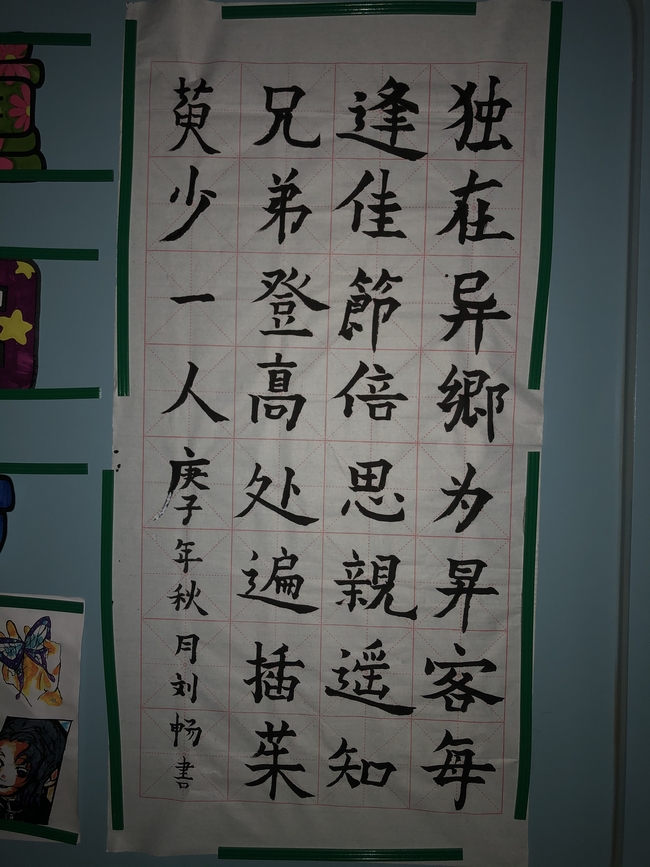 独在异鄉为昇客每
逢佳節倍思親遥知
兄弟登髙处遍插茱
萸少一人庚子年秋月刘畅書